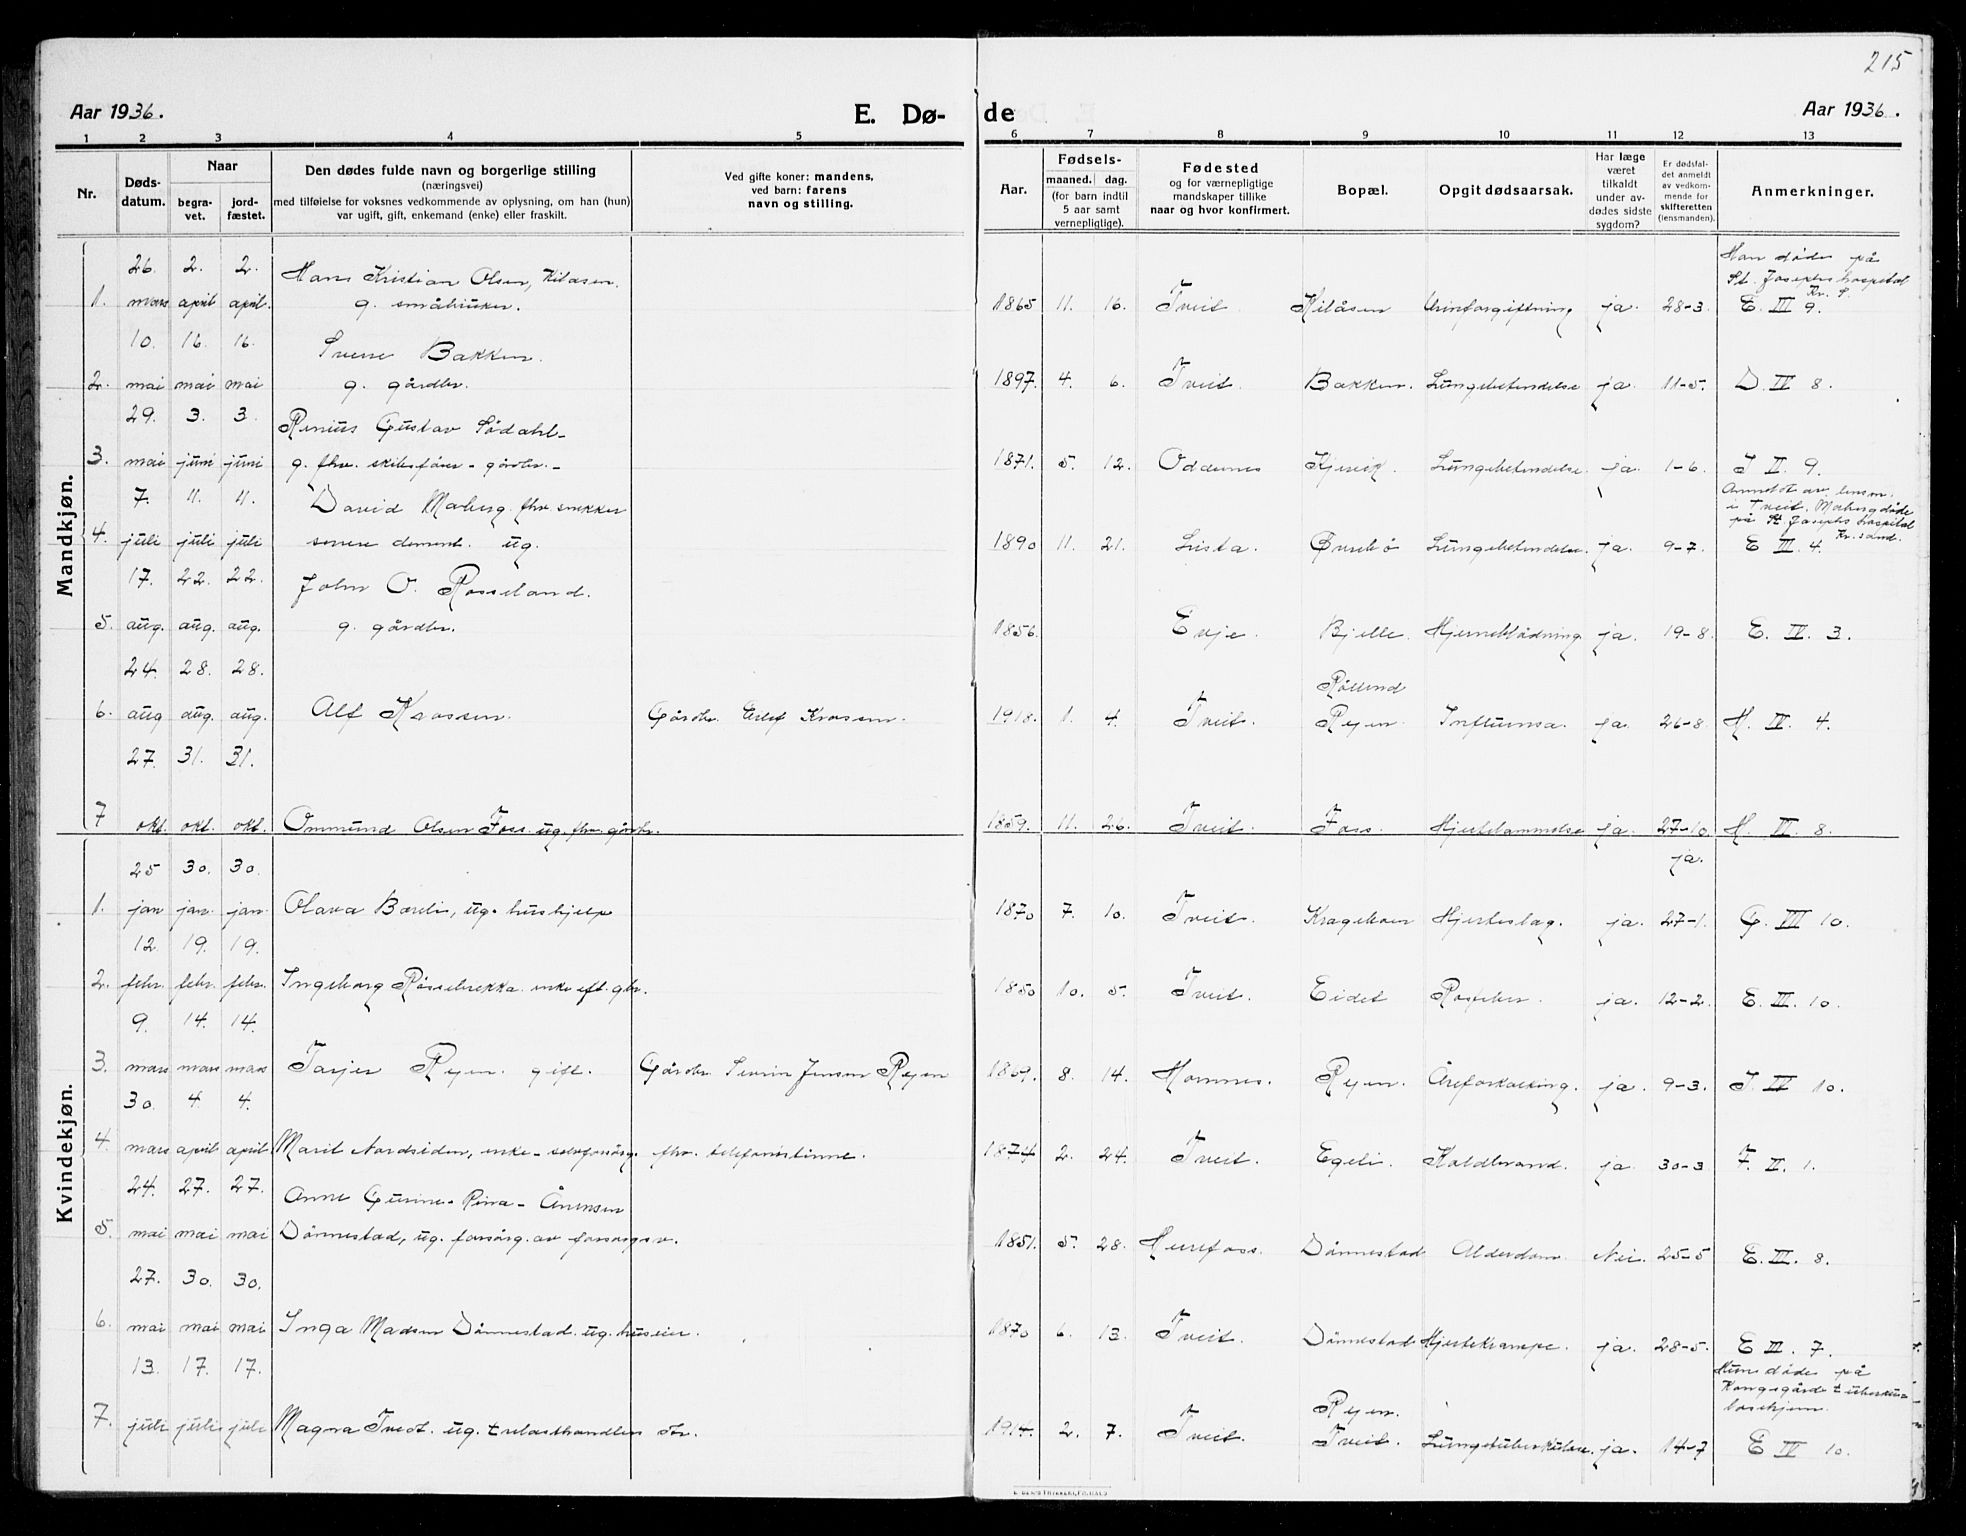 215
Aar 1936.
E. Dø-
de
Aar 1936.
1 2 3 4 5 6 7 8 9 10 11 12 13
Nr.
Døds-
datum.
Naar
begra-
vet.
jord-
fæstet.
Den dødes fulde navn og borgerlige stilling
(næringsvei)
med tilføielse for voksnes vedkommende av oplysning, om han (hun)
var ugift, gift, enkemand (enke) eller fraskilt.
Ved gifte koner: mandens,
ved barn: farens
navn og stilling.
Aar.
Fødsels-
maaned. dag.
(for barn indtil
5 aar samt
vernepligtige).
Fødested
og for værnepligtige
mandskaper tillike
naar og hvor konfirmert.
Bopæl.
Opgit dødsaarsak.
Har læge
været
tilkaldt
under av-
dødes sidste
sygdom?
Er dødsfal-
det anmeldt
av vedkom-
mende for
skifteretten
(lensmanden).
Anmerkninger.
Mandkjøn.
26. 2. 2. Hans Kristian Olsen, Kilåsen. Han døde på
St. Josephs hospital
Kr. S.
1. mars april april. g. småbruker. 1865 11. 16. Tveit Kilåsen Urinforgiftning ja. 28-3. E III 9.
10. 16. 16. Sverre Bakken.
2. mai mai mai g. gårdbr. 1897. 4. 6. Tveit. Bakken. Lungebetendelse ja. 11-5. D. IV 8.
29. 3. 3. Renius Gustav Södahl-
3. mai juni juni g. fhv. skibsfører - gårdbr. - 1871. 5. 12. Oddernes Kjevik. Lungebetendelse. ja. 1-6. J II. 9.
Anmeldt av lensm.
i Tveit. Moberg døde
på St. Josephs hospital
Kr. sand.
7. 11. 11. David Moberg. fhv. snekker
4. juli juli juli senere dement. ug. 1890 11. 21. Lista. Øvrebø Lungebetendelse. ja. 9-7. E III. 4.
17. 22. 22. John O. Rosseland.
5. aug. aug. aug. g. gårdbr. 1856. Evje. Bjelle. Hjerneblödning ja. 19-8. E. IV. 3.
24. 28. 28.
6. aug aug. aug. Alf Krossen. Gårdbr. Eilef Krossen. 1918. 1. 4. Tveit. Ryen. Influensa. ja. 26-8. H. IV. 4.
27. 31. 31.
7 okt. okt. okt. Ommund Olsen Foss. ug. fhv. gårdbr. 1859. 11. 26. Tveit. Foss. Hjertelammelse ja. 27-10 H. IV. 8.
ja.
Kvindekjøn.
25 30. 30.
1. jan jan. jan. Olava Bærlis, ug. hushjelp 1870 7. 10. Tveit. Kragehoer Hjerteslag. ja. 27-1. G. III 10.
12. 19. 19.
2. febr. febr. febr. Ingeborg Røssebrekka. enke eft. gbr. 1850 10. 5. Tveit. Eidet Rosfeber. ja. 12-2. E. III. 10.
9. 14. 14.
3. mars mars mars Tarjer Ryen. gift. Gårdbr. Severin Jensen Ryen 1869. 8. 14. Hommes. Ryen. Åreforkalkning. ja. 9-3. J. IV 10.
30. 4. 4.
4. mars april april. Marit Nordsiden, enke - selvforsörg. fhv. telefonistinne. 1874 2. 24. Tveit. Egeli. Koldbrand. ja. 30-3. F. II. 1.
24. 27. 27. Anne Gurine - Rina - Årensen
5. mai mai mai Dönnestad, ug. forsörg. av forsorgsv. 1851. 5. 28. Herefoss. Dönnestad Alderdom. Nei. 25-5 E. III. 8.
27. 30. 30.
6. mai mai mai Inga Madsen Dönnestad. ug. huseier. 1870 6. 13. Tveit. Dönnestad Hjertekrampe. ja. 28-5. E III. 7.
13. 17. 17. Hun døde på
Kongsgård tuberku-
losehjem.
7. juli juli juli Magna Tvedt. ug. trelasthandlers dtr. 1914. 2. 7. Tveit. Ryen.
Tveit. Lungetuberkulose. ja. 14-7 E IV 10.